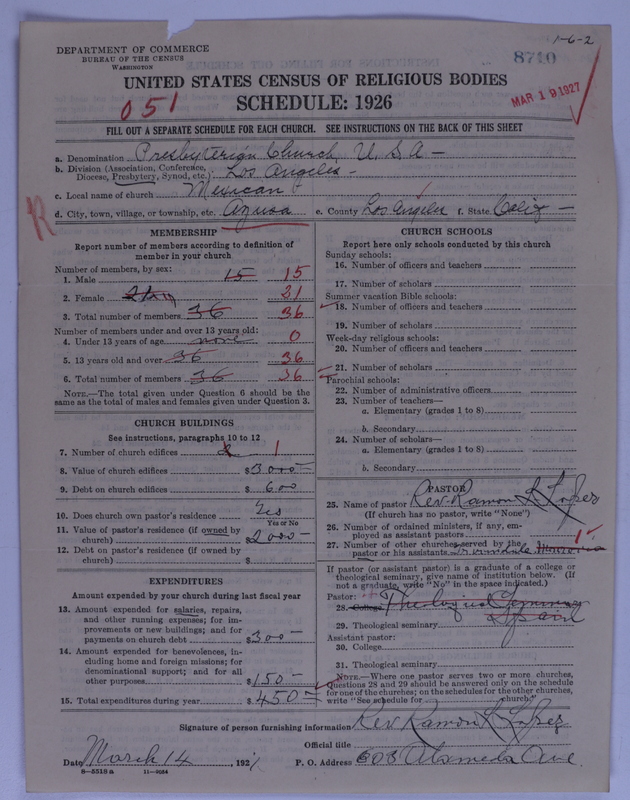 1-6-2
DEPARTMENT OF COMMERCE
BUREAU OF THE CENSUS
WASHINGTON
8710
MAR 19 1927
UNITED STATES CENSUS OF RELIGIOUS BODIES
SCHEDULE: 1926
051
FILL OUT A SEPARATE SCHEDULE FOR EACH CHURCH. SEE INSTRUCTIONS ON THE BACK OF THIS SHEET
a. Denomination Presbyterian Church, U S A -
b. Division (Association, Conference, Diocese, Presbytery, Synod, etc.) Los Angeles -
c. Local name of church Mexican
R
d. City, town, village, or township, etc. Azusa e. County Los Angeles f. State Calif -
MEMBERSHIP
Report number of members according to definition of
member in your church
Number of members, by sex:
1. Male 15 15
2. Female 21
3. Total number of members 36 36
Number of members under and over 13 years old:
4. Under 13 years of age none 0
5. 13 years old and over 36 36
6. Total number of members 36 36
NOTE.—The total given under Question 6 should be the
same as the total of males and females given under Question 3.
CHURCH BUILDINGS
See instructions, paragraphs 10 to 12
7. Number of church edifices 1
8. Value of church edifices $3000-
9. Debt on church edifices $600
10. Does church own pastor's residence Yes
Yes or No
11. Value of pastor's residence (if owned by
church) $2000-
12. Debt on pastor's residence (if owned by
church) $
EXPENDITURES
Amount expended by your church during last fiscal year
13. Amount expended for salaries, repairs,
and other running expenses; for im-
provements or new buildings; and for
payments on church debt $300-
14. Amount expended for benevolences, in-
cluding home and foreign missions; for
denominational support; and for all
other purposes $150-
15. Total expenditures during year $450-
CHURCH SCHOOLS
Report here only schools conducted by this church
Sunday schools:
16. Number of officers and teachers
17. Number of scholars
Summer vacation Bible schools:
18. Number of officers and teachers
19. Number of scholars
Week-day religious schools:
20. Number of officers and teachers
21. Number of scholars
Parochial schools:
22. Number of administrative officers
23. Number of teachers—
a. Elementary (grades 1 to 8)
b. Secondary
24. Number of scholars—
a. Elementary (grades 1 to 8)
b. Secondary
PASTOR
25. Name of pastor Rev. Ramon L Lopez
(If church has no pastor, write "None")
26. Number of ordained ministers, if any, em-
ployed as assistant pastors
27. Number of other churches served by the 1
pastor or his assistants Irwindale Monrovia
If pastor (or assistant pastor) is a graduate of a college or
theological seminary, give name of institution below. (If
not a graduate, write "No" in the space indicated.)
Pastor:
28. College Theological Seminary
29. Theological seminary Spain
Assistant pastor:
30. College
31. Theological seminary
NOTE.—Where one pastor serves two or more churches,
Questions 28 and 29 should be answered only on the schedule
for one of the churches; on the schedules for the other churches,
write "See schedule for church."
Signature of person furnishing information Rev Ramon L Lopez
Official title
Date March 14, 1927 P. O. Address 603 Alameda Ave.
8-5518 a 11-9864